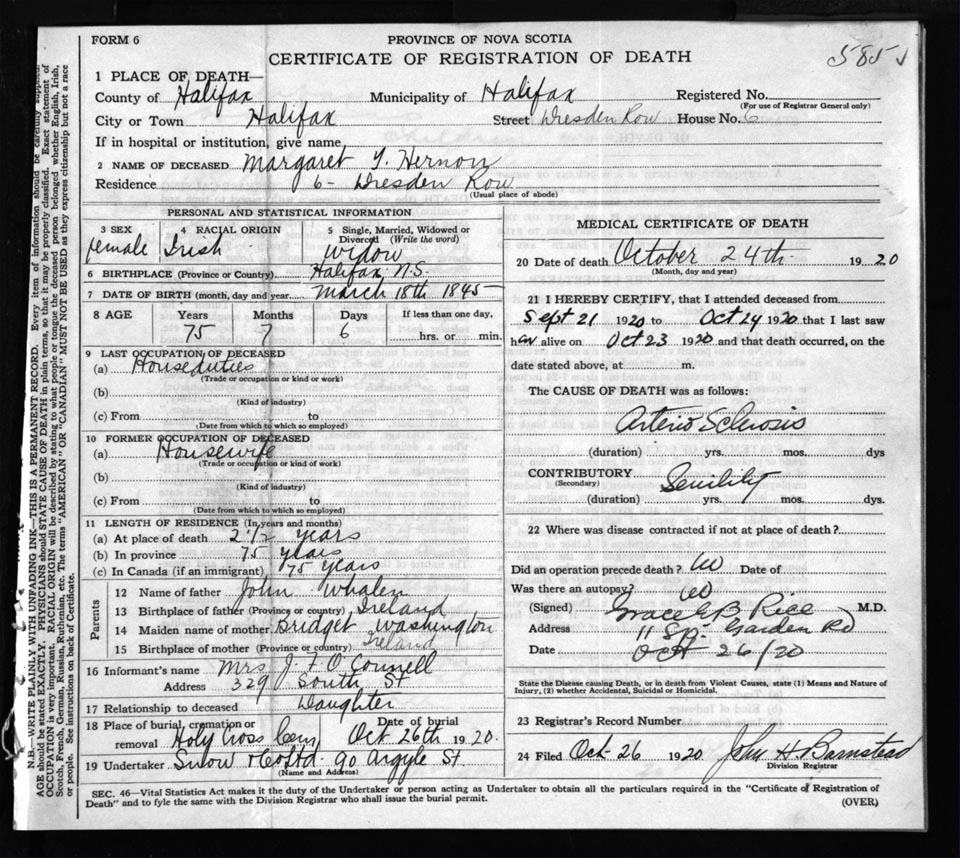 FORM 6
PROVINCE OF NOVA SCOTIA
CERTIFICATE OF REGISTRATION OF DEATH
585
1 PLACE OF DEATH—
County of Halifax Municipality of Halifax Registered No.
(For use of Registrar General only)
City or Town Halifax Street Dresden Row House No. 6
If in hospital or institution, give name
2 NAME OF DECEASED Margaret Y. Hernon
Residence 6 - Dresden Row
(Usual place of abode)
PERSONAL AND STATISTICAL INFORMATION
3 SEX 4 RACIAL ORIGIN 5 Single, Married, Widowed or
Divorced (Write the word)
female Irish widow
6 BIRTHPLACE (Province or Country) Halifax N.S.
7 DATE OF BIRTH (month, day and year) March 18th 1845
8 AGE Years Months Days If less than one day,
75 7 6 hrs. or min.
9 LAST OCCUPATION OF DECEASED
(a) Houseduties
(Trade or occupation or kind or work)
(b)
(Kind of industry)
(c) From to
(Date from which to which so employed)
10 FORMER OCCUPATION OF DECEASED
(a) Housewife
(Trade or occupation or kind of work)
(b)
(Kind of industry)
(c) From to
(Date from which to which so employed)
11 LENGTH OF RESIDENCE (In years and months)
(a) At place of death 2 1/2 years
(b) In province 75 years
(c) In Canada (if an immigrant) 75 years
Parents
12 Name of father John Whalen
13 Birthplace of father (Province or country) Ireland
14 Maiden name of mother Bridget Washington
15 Birthplace of mother (Province or country) Ireland
16 Informant's name Mrs J. F. O Connell
Address 329 South St
17 Relationship to deceased Daughter
18 Place of burial, cremation or Date of burial
removal Holy Cross Cem, Oct 26th 1920.
19 Undertaker Snow & Co Ltd. 90 Argyle St.
(Name and Address)
MEDICAL CERTIFICATE OF DEATH
20 Date of death October 24th 1920
(Month, day and year)
21 I HEREBY CERTIFY, that I attended deceased from
Sept 21 1920 to Oct 24 1920 that I last saw
her alive on Oct 23 1920 and that death occurred, on the
date stated above, at m.
The CAUSE OF DEATH was as follows:
Arterio Sclerosis
(duration) yrs. mos. dys
CONTRIBUTORY Senility
(Secondary)
(duration) yrs. mos. dys.
22 Where was disease contracted if not at place of death?
Did an operation precede death? no Date of
Was there an autopsy no
(Signed) Grace E B Rice M.D.
Address 11 Sp. Garden Rd
Date Oct 26/20
State the Disease causing Death, or in death from Violent Causes, state (1) Means and Nature of
Injury, (2) whether Accidental, Suicidal or Homicidal.
23 Registrar's Record Number
24 Filed Oct 26 1920 John H. Barnstead
Division Registrar
SEC. 46—Vital Statistics Act makes it the duty of the Undertaker or person acting as Undertaker to obtain all the particulars required in the "Certificate of Registration of
Death" and to fyle the same with the Division Registrar who shall issue the burial permit.
(OVER)
N.B.—WRITE PLAINLY WITH UNFADING INK—THIS IS A PERMANENT RECORD. Every item of information should be carefully supplied.
AGE should be stated EXACTLY. PHYSICIANS should STATE CAUSE OF DEATH in plain terms, so that it may be properly classified. Exact statement of
OCCUPATION is very important. RACIAL ORIGIN will be described by stating to what people or tongue the deceased person belonged whether English, Irish,
Scotch, French, German, Russian, Ruthenian, etc. The terms "AMERICAN" OR "CANADIAN" MUST NOT BE USED as they express citizenship but not a race
or people. See instructions on back of Certificate.